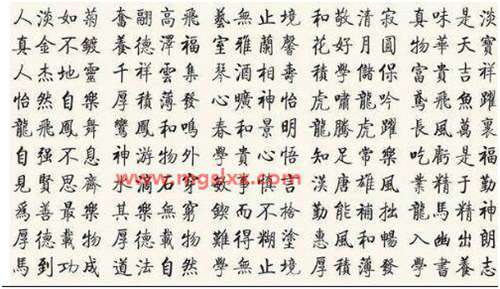 人淡如菊 奮翮高飛 藝無止境 和敬清寂 真味是淡
真金不鍍 養德澤福 室雅蘭馨 花好月圓 物華天寶
人杰地靈 千祥雲集 琴 積學儲 富貴吉祥
怡然自樂 厚積薄發 心曠神怡 虎嘯龍吟 鳶飛魚躍
龍飛鳳舞 鸞鳳和鳴 春和景明 龍騰虎躍 長風萬里
自强不息 神游物外 學貴心悟 知足常樂 吃虧是福
見賢思齊 水滴石穿 漢唐雄風 業精於勤
爲善最樂 其樂無窮 鍥而不捨 勤能補拙 龍馬精神
厚德載物 難得糊塗 惠風和暢 入幽出朗
馬到功成 道法自然 學無止境 厚積薄發 學書養志
www.mgslxx.com